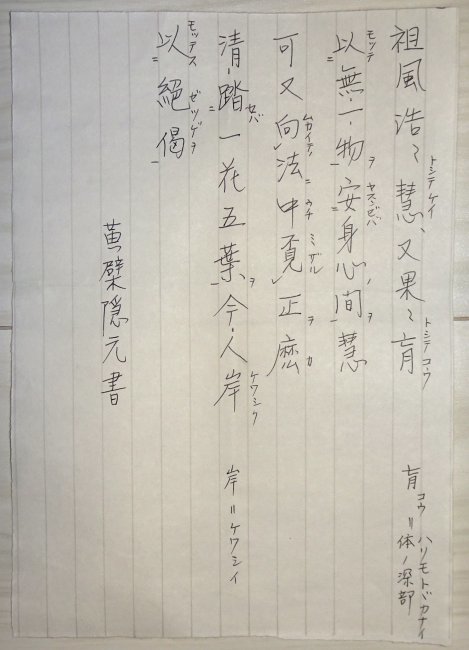 トシテケイ トシテコウ
祖風浩〻慧又果〻肓
コウ ハリモトドカナイ
肓=体ノ深部
モッテ ヲ ヤスンゼバ ノ ヲ
以無一物安身心間慧
ムカイテ ニ ウチ ミザル ヲ カ
可又向法中覔正麽
セバ ヲ ケワシク
清踏一花五葉今人岸
岸=ケワシイ
モッテス ゼツゲヲ
以絕偈
黄檗隠元書